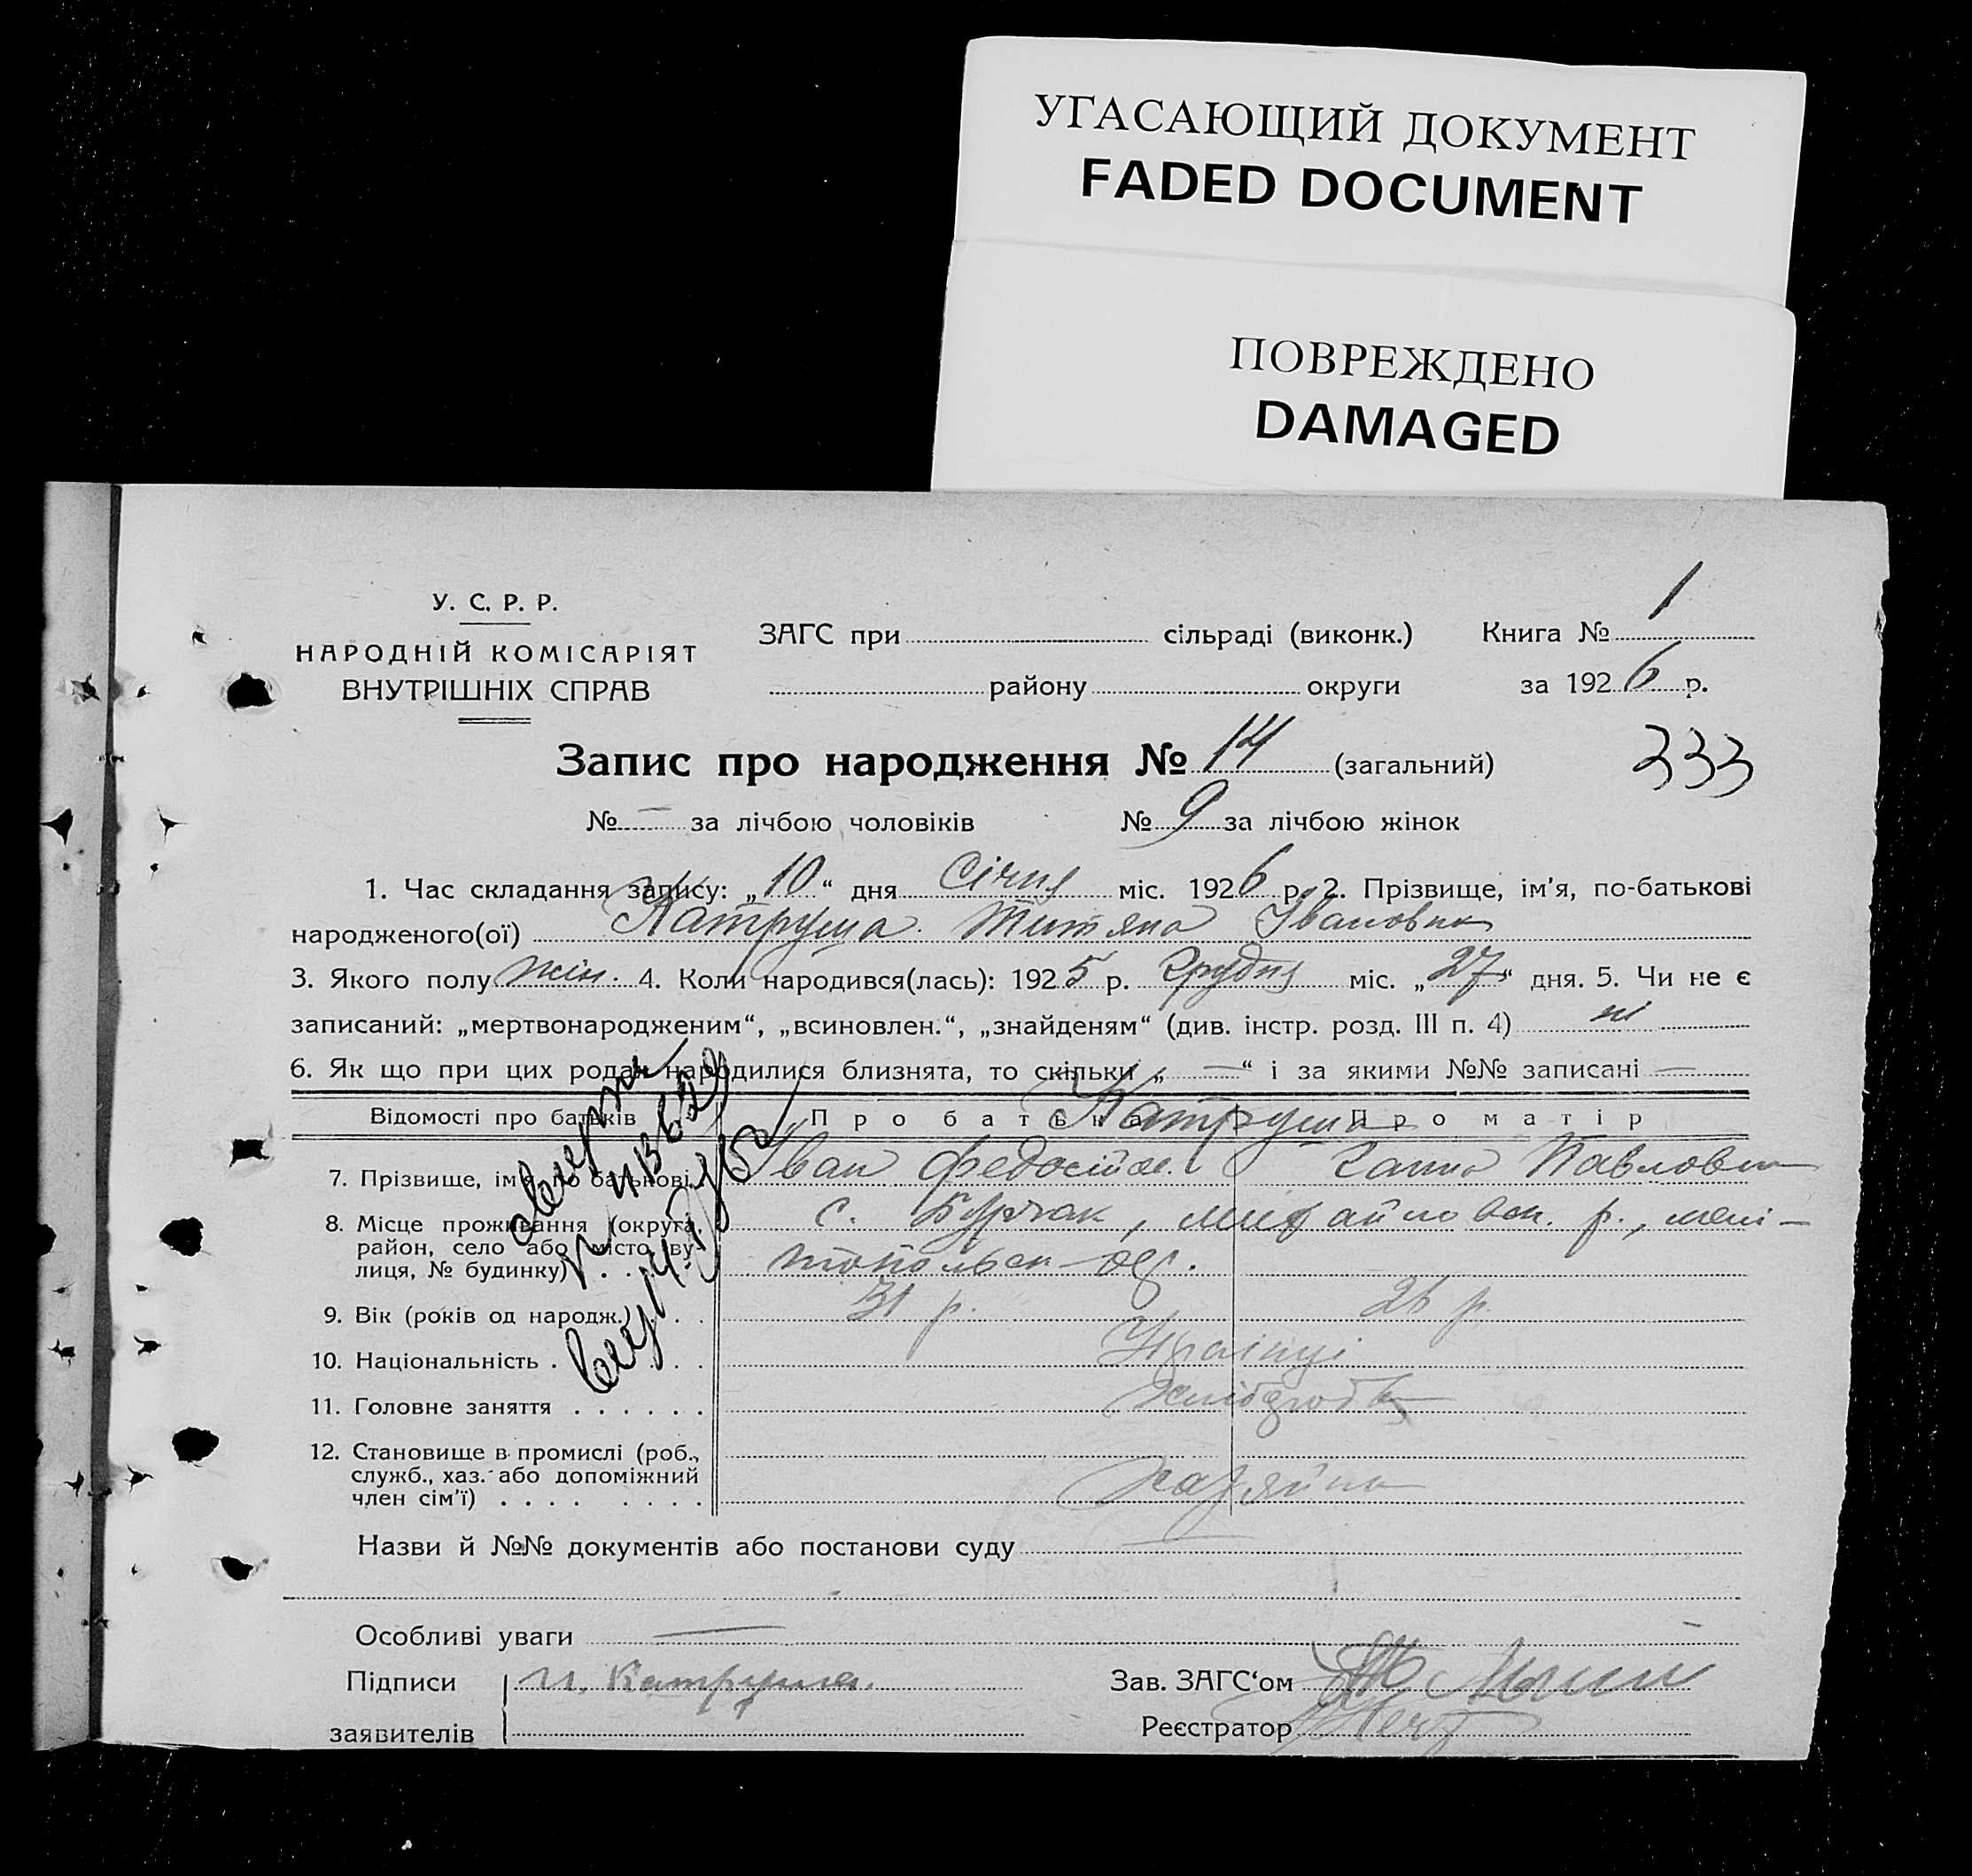 УГАСАЮЩИЙ ДОКУМЕНТ
FADED DOCUMENT
ПОВРЕЖДЕНО
DAMAGED
У. С. Р. Р.
НАРОДНІЙ КОМІСАРІЯТ
ВНУТРІШНІХ СПРАВ
ЗАГС при сільраді (виконк.) Книга № 1
району округи за 1926 р.
Запис про народження № 14 (загальний)
333
№ — за лічбою чоловіків № 9 за лічбою жінок
1. Час складання запису: „10“ дня Січня міс. 1926 р. 2. Прізвище, ім'я, по-батькові
народженого(ої) Катруша Титяна Івановна
3. Якого полу жін. 4. Коли народився(лась): 1925 р. Грудня міс. „27“ дня. 5. Чи не є
записаний: „мертвонародженим“, „всиновлен.“, „знайденям“ (див. інстр. розд. III п. 4) ні
6. Як що при цих родах народилися близнята, то скільки „—“ і за якими №№ записані —
Відомості про батьків Про батька Про матір
Катруша
7. Прізвище, ім'я, по батькові Іван Федосійов. Ганна Павловна
8. Місце проживання (округа, район, село або місто, ву-лиця, № будинку) с. Бурчак, михайловск. р., мелі-
топольск. окр.
9. Вік (років од народж.) 31 р. 26 р.
10. Національність Українці
11. Головне заняття Хлібороб
12. Становище в промислі (роб., служб., хаз. або допоміжний член сім'ї) Хазяйин
Назви й №№ документів або постанови суду
Особливі уваги —
Підписи И. Катруша. Зав. ЗАГС‘ом
заявителів Реєстратор